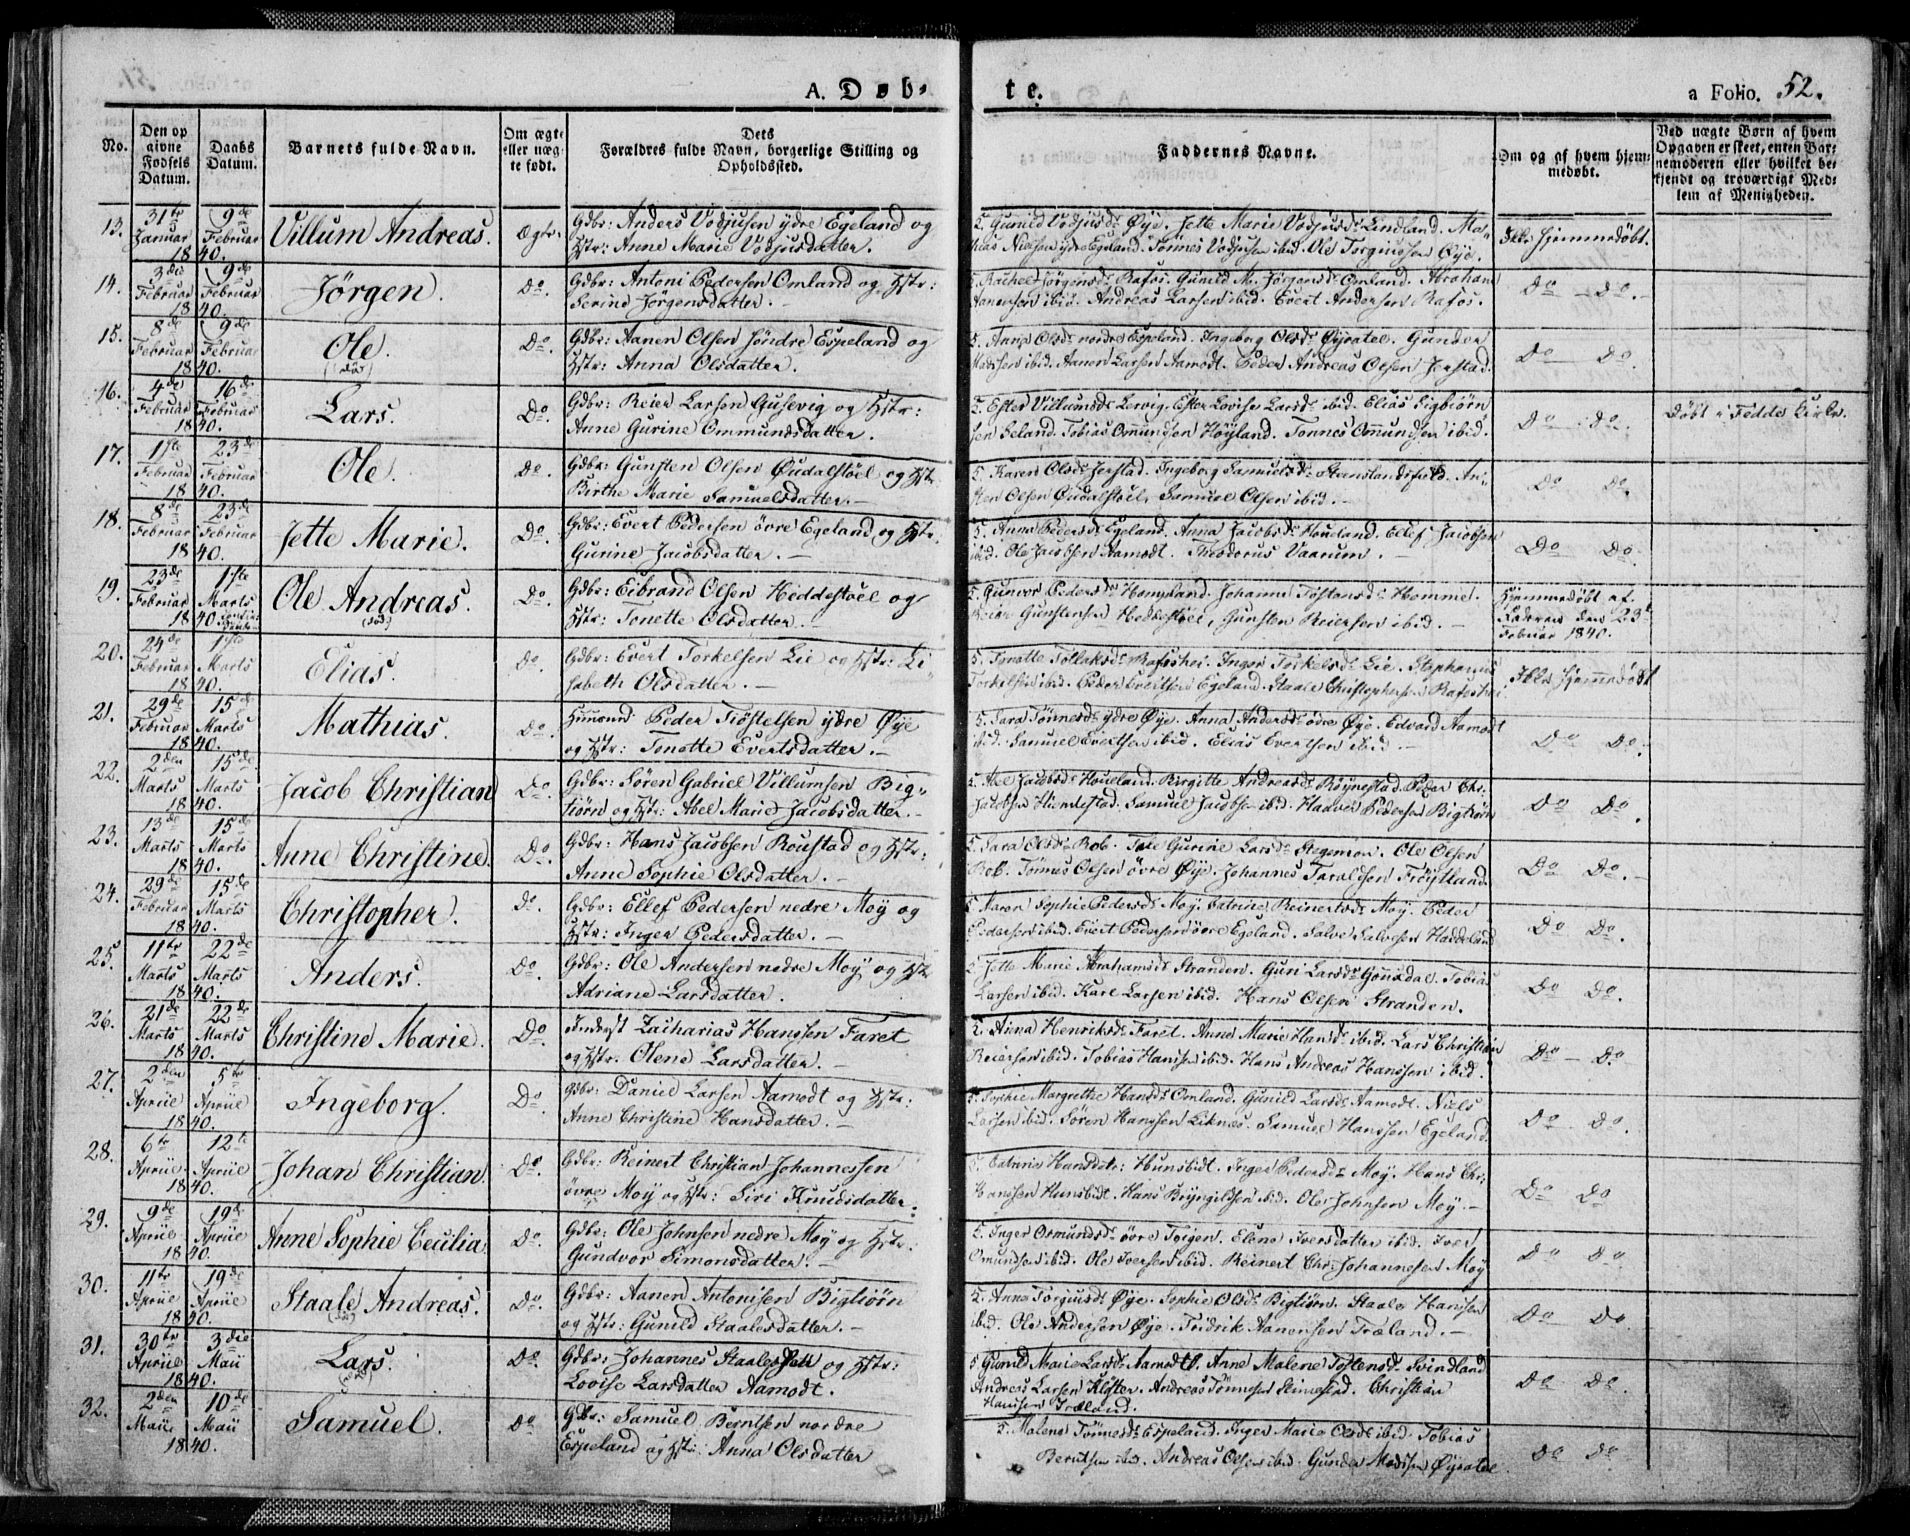 A. Døb-
te.
a Folio. 52.
No.
Den op givne Fødsels Datum.
Daabs Datum.
Barnets fulde Navn.
Om ægte eller uægte født.
Dets Forældres fulde Navn, borgerlige Stilling og Opholdssted.
Faddernes Navne.
Om og af hvem hjemmedøbt.
Ved uægte Børn af hvem Opgaven er skeet, enten Barnemoderen eller hvilket bekjendt og troværdigt Medlem af Menigheden.
13.
31te Januar
9de Februar
1840.
Villum Andreas.
Ægte.
Gdbr: Anders Vodjusen ydre Egeland og
Hstr: Anne Marie Vodjusdatter.
5. Gunild Vodjusd: Øye. Jette Marie Vodjusd: Lindland. Ma-
thias Nielsen ydre Egeland. Tønnes Vodjusen ibid. Ole Torgiusen Øye.
Ikke hjemmedøbt.
14.
3die Februar
9de Februar
1840.
Jørgen.
Do.
Gdbr: Antoni Pedersen Omland og Hstr:
Serine Jørgensdatter.
5. Rachel Jørgensd: Rafos. Gunild M. Jørgensd: Omland. Abraham
Aanensen ibid. Andreas Larsen ibid. Evert Andersen Rafos.
Do - Do.
15.
8de Februar
9de Februar
1840.
Ole.
(død)
Do.
Gdbr: Aanen Olsen søndre Espeland og
Hstr: Anna Olsdatter.
5. Anna Olsd: nordre Espeland. Ingeborg Olsd: Øysatel. Gunder
Madssen ibid. Aanen Larsen Aamodt. Peder Andreas Olsen Jerstad.
Do Do
16.
4de Februar
16de Februar
1840.
Lars.
Do.
Gdbr: Reier Larsen Gusevig og Hstr:
Anne Gurine Ommundsdatter.
5. Ester Villumsd: Lervig. Ester Lovise Larsd: ibid. Elias Sigbiørn-
sen Seland. Tobias Omundsen Høyland. Tønnes Omundsen ibid.
Do Do.
Døbt i Fedde Kirke.
17.
1ste Februar
23de Februar
1840.
Ole.
Do.
Gdbr: Gunsten Olsen Qudalstøel og Hstr
Birthe Marie Samuelsdatter.
5. Karen Olsd: Jerstad. Ingeborg Samuelsd:
sten Olsen Qudalstøel, Samuel Olsen ibid.
Do Do.
18.
8de Februar
23de Februar
1840.
Jette Marie.
Do.
Gdbr: Evert Pedersen øvre Egeland og Hstr.
Gurine Jacobsdatter.
5. Anna Pedersd: Egeland. Anna Jacobsd: Houland. Ellef Jacobsen
ibid. Ole Jacobsen Aamodt. Theodorus Vaarum.
Do Do.
19.
23de Februar
1ste Marts
1840
Ole Andreas.
(død)
Do.
Gdbr: Eibrand Olsen Heddestøel og
Hstr: Tonette Olsdatter.
5. Gunvor Pedersd: Hompland. Johanne Tostensd: Hommel.
Reier Gunstensen Heddestøel, Gunsten Reiersen ibid.
Hjemmedøbt af
Faderen den 23de
Februar 1840.
20.
24de Februar
1ste Marts
1840.
Elias.
Do.
Gdbr: Evert Torkelsen Lie og Hstr: Li-
sabeth Olsdatter.
5. Tonette Tollaksd: Rafoshei. Inger Torkelsd: Lie. Stephanus
Torkelsen ibid. Peder Evertsen Egeland. Staale Christophersen Rafoshei.
Ikke hjemmedøbt
21.
29de Februar
15de Marts
1840.
Mathias.
Do.
Huusmd: Peder Trøstelsen ydre Øye
og Hstr: Tonette Evertsdatter.
5. Sara Tønnesd: ydre Øye. Anna Andersd: øvre Øye. Edvard Aamodt
ibid. Samuel Evertsen ibid. Elias Evertsen ibid
Do Do.
22.
2den Marts
15de Marts
1840.
Jacob Christian
Do.
Gdbr: Søren Gabriel Villumsen Big-
tiørn og Hstr: Abel Marie Jacobsdatter.
5. Abel Jacobsd: Houeland. Birgitte Andreasd: Røynestad. Peder Chr:
Jacobsen Hindestad. Samuel Jacobsen ibid. Haaver Pedersen Bigtiørn
Do Do.
23.
13de Marts
15de Marts
1840.
Anne Christine.
Do.
Gdbr: Hans Jacobsen Roustad og Hstr:
Anne Sophie Olsdatter.
5. Sara Olsd: Rob. Tale Gurine Larsd: Stegemon. Ole Olsen
Rob. Tønnes Olsen øvre Øye. Johannes Taraldsen Frøystland.
Do Do.
24.
29de Februar
15de Marts
1840.
Christopher.
Do.
Gdbr: Ellef Pedersen nedre Moy og
Hstr: Inger Pedersdatter.
5. Karen Sophie Pedersd: Moy. Catrine Reinertsd: Moy. Peder
Pedersen ibid. Evert Pedersen øvre Egeland. Salve Salvesen Haddeland
Do Do.
25.
11te Marts
22de Marts
1840.
Anders.
Do.
Gdbr: Ole Andersen nedre Moy og Hstr
Adriane Larsdatter.
5. Jette Marie Abrahamsd: Stranden. Guri Larsd: Gousdal. Tobias
Larsen ibid. Karl Larsen ibid. Hans Olsen Stranden.
Do Do.
26.
21de Marts
22de Marts
1840.
Christine Marie.
Do.
Inderst Zacharias Hanssen Faret
og Hstr. Olene Larsdatter.
5. Anna Henriksd: Faret. Anne Marie Hansd: ibid. Lars Christian
Reiersen ibid. Tobias Hanssen ibid. Hans Andreas Hanssen ibid.
Do - Do.
27.
2den Apriil
5te Apriil
1840.
Ingeborg.
Do.
Gdbr: Daniel Larsen Aamodt og Hstr:
Anne Christine Hansdatter.
5. Sophie Margrethe Hansd: Omland. Gunild Larsd: Aamodt. Niels
Larsen ibid. Søren Hanssen Liknes. Samuel Hanssen Egeland.
Do Do.
28.
6te Apriil
12te Apriil
1840.
Johan Christian
Do.
Gdbr: Reinert Christian Johannessen
øvre Moy og Hstr: Siri Knudsdatter.
5. Catrine Hansdatr: Hunsbidt. Inger Pedersd: Moy. Hans Chr:
Hanssen Hunsbidt. Hans Bryngildsen ibid. Ole Johnsen Moy.
Do Do
29.
9de Apriil
19de Apriil
1840.
Anne Sophie Cecilia
Do.
Gdbr: Ole Johnsen nedre Moy og Hstr:
Gundvor Simonsdatter.
5. Inger Osmundsd: øvre Foigen. Elene Iversdatter ibid. Iver
Omundsen ibid. Ole Iversen ibid. Reinert Chr: Johannesen Moy
Do Do
30.
11te Apriil
19de Apriil
1840.
Staale Andreas.
(død)
Do.
Gdbr: Aanen Antonisen Bigtiørn
og Hstr: Gunild Staalesdatter.
5. Anna Torgiusd: Øye. Sophie Olsd: Bigtiørn. Staale Hansen
ibid. Ole Andersen Øye. Fridrik Aanensen Træland.
Do Do
31.
30te Apriil
3die Maii
1840.
Lars.
Do.
Gdbr: Johannes Staalesen og Hstr:
Lovise Larsdatter Aamodt.
5 Gunild Marie Larsd: Aamodt. Anne Malene Tostensd: Svindland
Andreas Larsen Kloster. Andreas Tønnesen Stimestad. Christian
Hanssen Træland.
Do Do.
32.
2den Maii
10de Maii
1840.
Samuel.
Do
Gdbr: Samuel Berntsen nordre
Espeland og Hstr: Anna Olsdatter
5. Malene Tønnesd: Espeland. Inger Marie Olsd: ibid. Tobias
Berntsen ibid. Andreas Olsen ibid. Gunder Madssen Øysatel
Do Do.